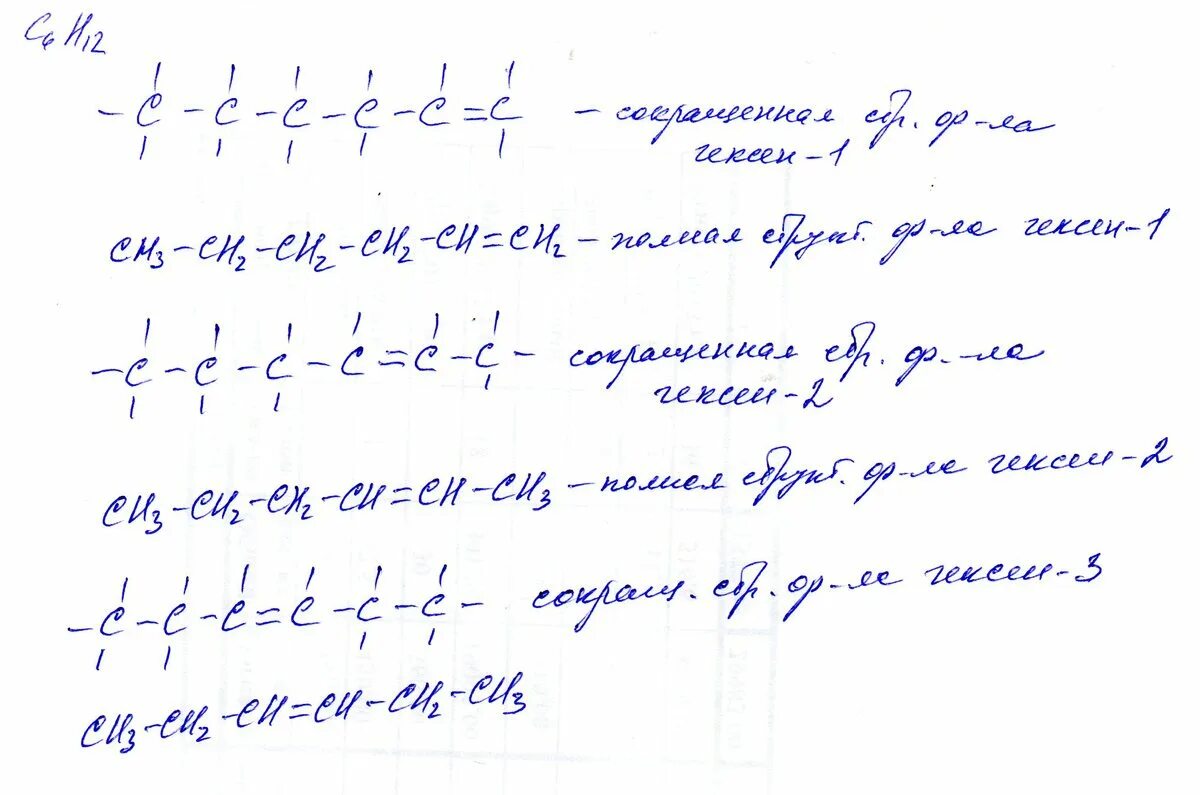 C6H12
– C – C – C – C – C = C – сокращенная стр. ф-ла
гексен-1
CH3 – CH2 – CH2 – CH2 – CH = CH2 – полная структ. ф-ла гексен-1
– C – C – C – C = C – C – сокращенная стр. ф.-ла
гексен-2
CH3 – CH2 – CH2 – CH = CH – CH3 – полная структ. ф-ла гексен-2
– C – C – C = C – C – C – сокращ. стр. ф-ла гексен-3
CH3 – CH2 – CH = CH – CH2 – CH3